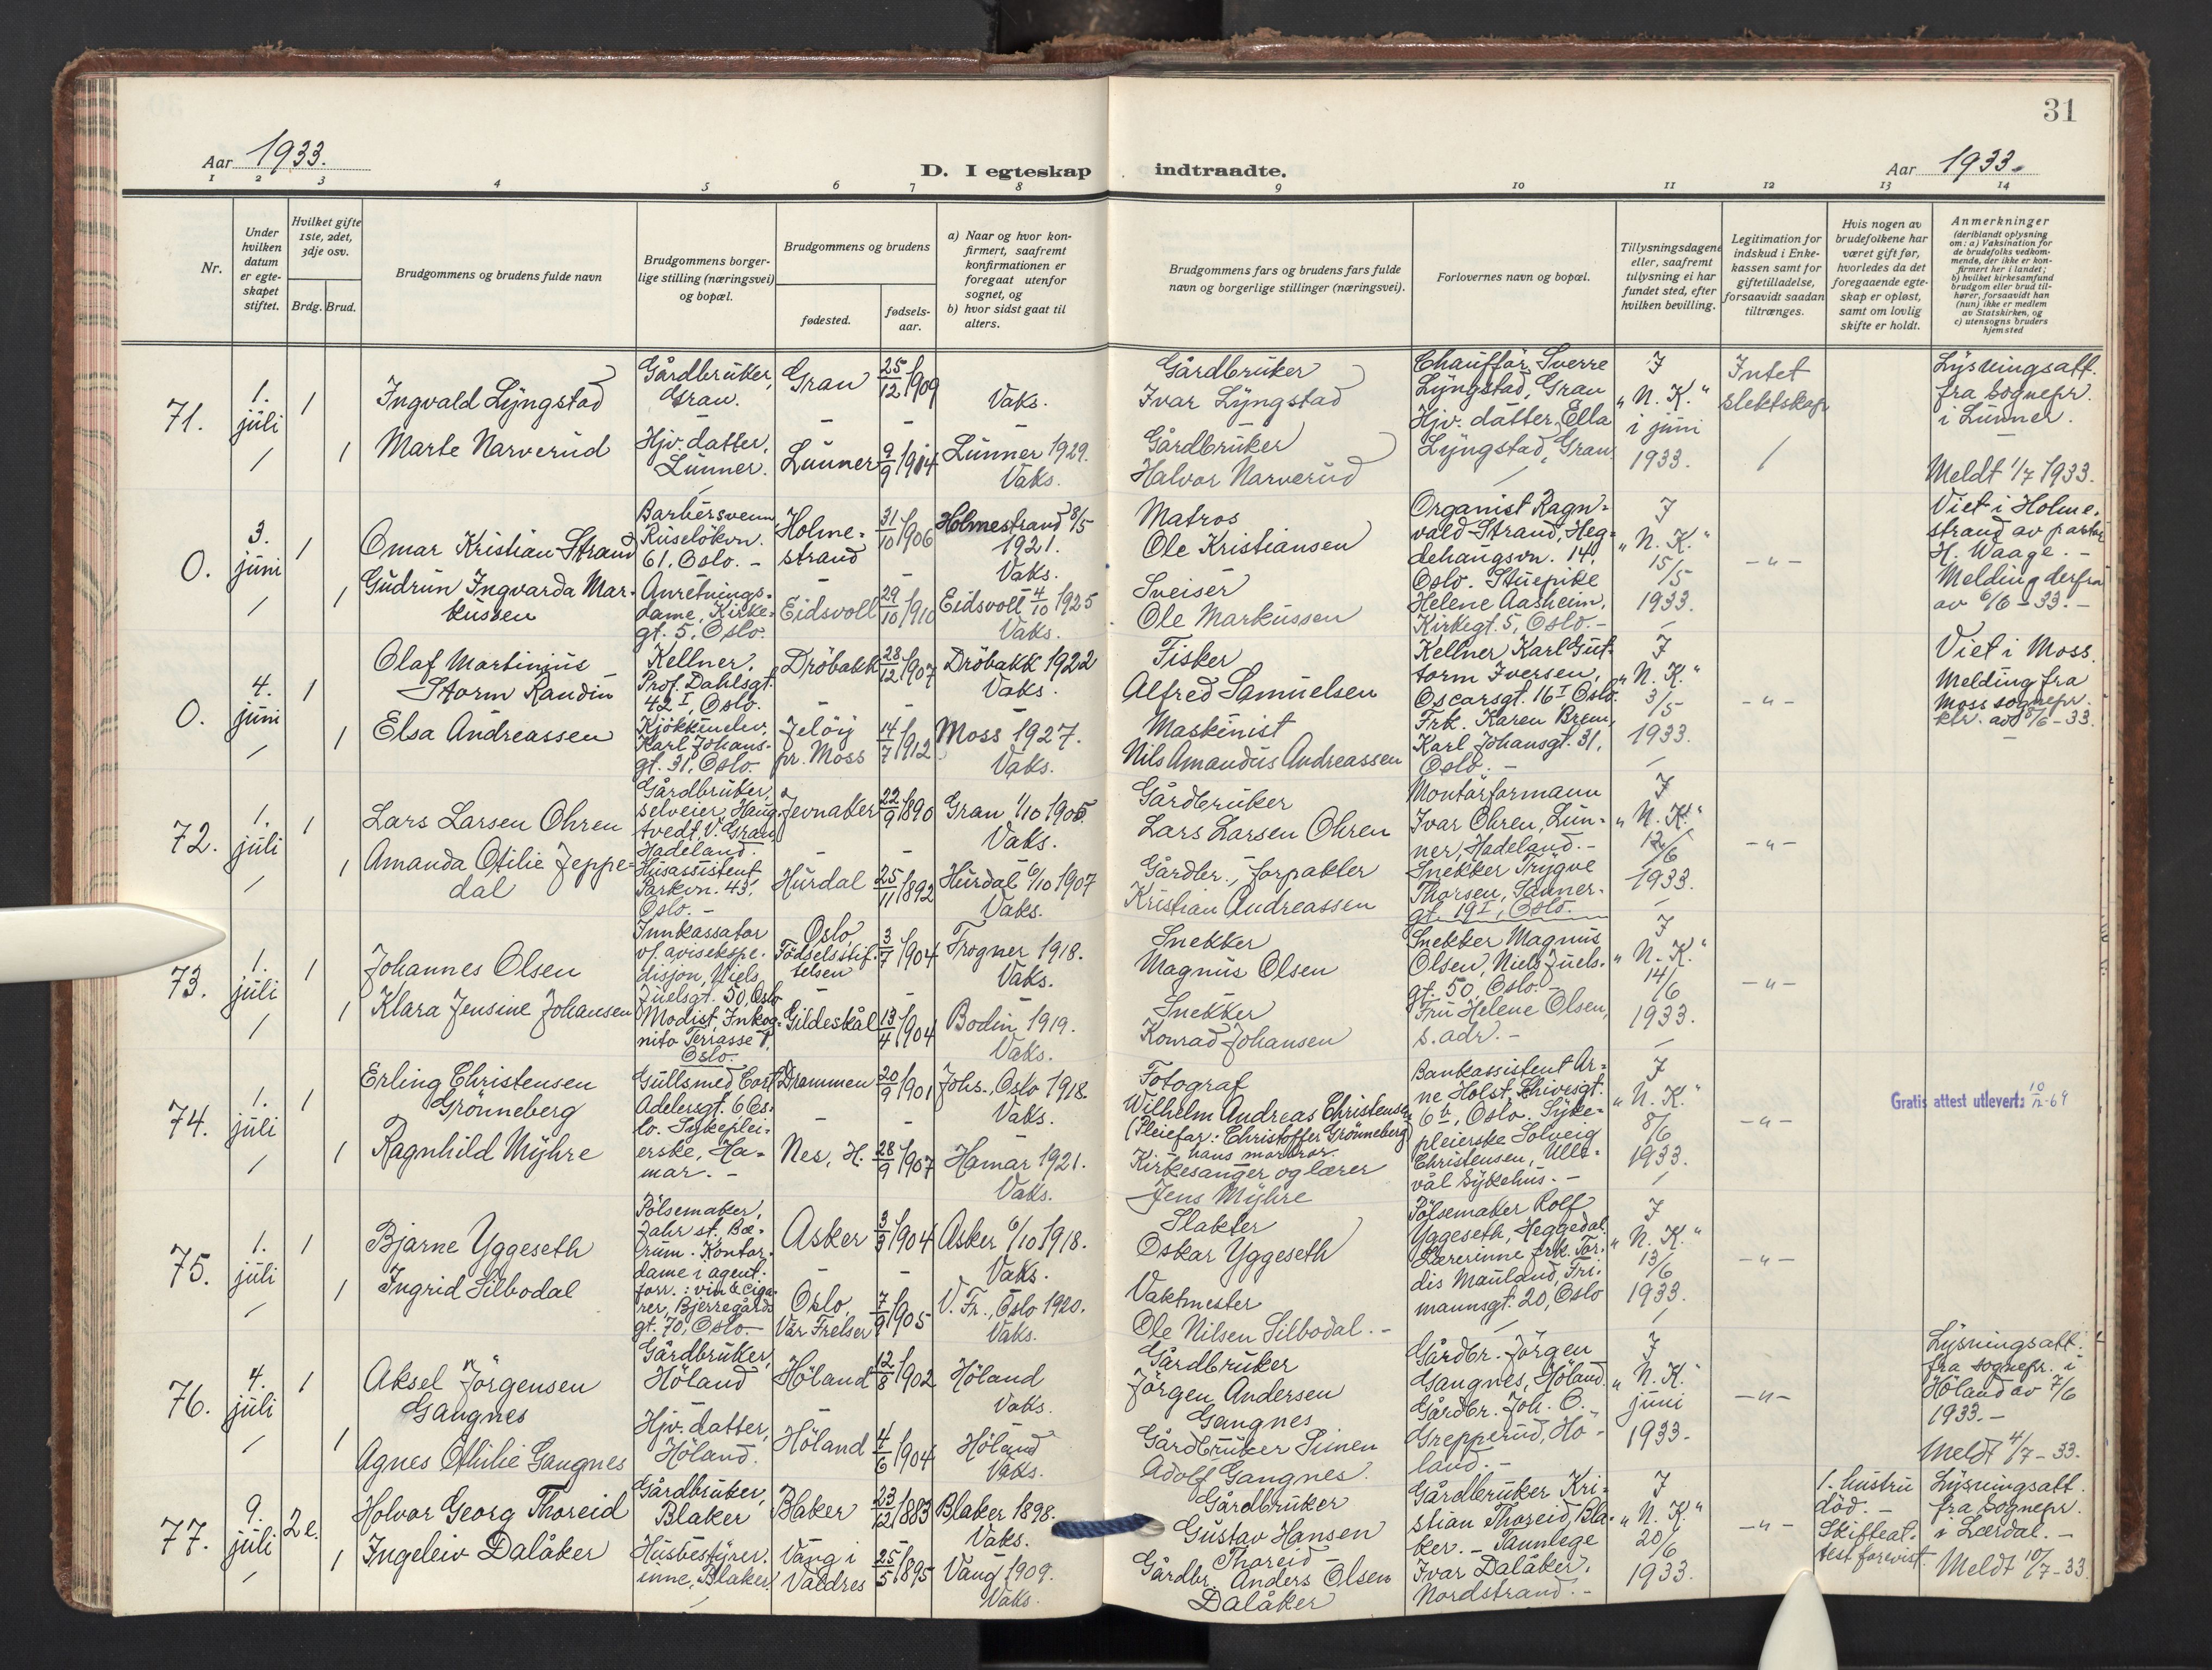 31
Aar 1933.
D. I egteskap indtraadte.
Aar 1933.
1 2 3 4 5 6 7 8 9 10 11 12 13 14
Nr.
Under hvilken datum er egteskapet stiftet.
Hvilket gifte 1ste, 2det, 3dje osv.
Brdg. Brud.
Brudgommens og brudens fulde navn
Brudgommens borgerlige stilling (næringsvei) og bopæl.
Brudgommens og brudens
fødested.
fødselsaar.
a) Naar og hvor konfirmert, saafremt konfirmationen er foregaat utenfor sognet, og
b) hvor sidst gaat til alters.
Brudgommens fars og brudens fars fulde navn og borgerlige stillinger (næringsvei).
Forlovernes navn og bopæl.
Tillysningsdagene eller, saafremt tillysning ei har fundet sted, efter hvilken bevilling.
Legitimation for indskud i Enkekassen samt for giftetilladelse, forsaavidt saadan tiltrænges.
Hvis nogen av brudefolkene har været gift før, hvorledes da det foregaaende egteskap er opløst, samt om lovlig skifte er holdt.
Anmerkninger
(deriblandt oplysning om: a) Vaksination for de brudefolks vedkommende, der ikke er konfirmert her i landet;
b) hvilket kirkesamfund brudgom eller brud tilhører, forsaavidt han (hun) ikke er medlem av Statskirken, og
c) utensogns bruders hjemsted
71. 1. juli 1
Ingvald Lyngstad
Gårdbruker, Gran.
Gran 25/12 1909
Vaks.
Gårdbruker
Ivar Lyngstad
Chauffør Sverre Lyngstad, Gran
Hjv. datter Ella Lyngstad, Gran
I „N. K.“ i juni 1933.
Intet slektskap
Lysningsatt. fra sognepr. i Lunner.
Meldt 1/7 1933.
1 Marte Narverud
Hjv. datter, Lunner.
Lunner 9/9 1914
Lunner 1929.
Vaks.
Gårdbruker
Halvor Narverud
0. 3. juni 1
Omar Kristian Strand
Barbersvenn, Ruseløkvn. 61. Oslo. -
Holmestrand 31/10 1906
Holmestrand 8/5 1921.
Vaks.
Matros
Ole Kristiansen
Organist Ragnvald Strand, Hegdehaugsvn. 14, Oslo. Stuepike Helene Aasheim, Kirkegt. 5, Oslo. -
I „N. K.“ 15/5 1933.
- " -
Viet i Holmestrand av pastor H. Waage. - Melding derfra av 6/6 - 33. -
1 Gudrun Ingvarda Markussen
Anretningsdame, Kirkegt. 5, Oslo.
Eidsvoll 29/10 1910
Eidsvoll 4/10 1925
Vaks.
Sveiser
Ole Markussen
0. 4. juni 1
Olaf Martinius Storm Raudin
Kellner, Prof. Dahlsgt. 42 I, Oslo.
Drøbakk 28/12 1907
Drøbakk 1922
Vaks.
Fisker
Alfred Samuelsen
Kellner Karl Guttorm Iversen, Oscarsgt. 16 I Oslo.
Frk. Karen Brem, Karl Johansgt. 31, Oslo. -
I „N. K.“ 3/5 1933.
- " -
Viet i Moss. Melding fra Moss sognepr. ktr. av 8/6 - 33.
1 Elsa Andreassen
Kjøkkenelev, Karl Johansgt. 31, Oslo.
Jeløy pr. Moss 14/7 1912
Moss 1927.
Vaks.
Maskinist
Nils Amandus Andreassen
72. 1. juli 1
Lars Larsen Ohren
Gårdbruker, selveier, Haugtvedt, V. Gran, Hadeland.
Jevnaker 22/9 1890
Gran 1/10 1905.
Vaks.
Gårdbruker
Lars Larsen Ohren
Montørformann Ivar Ohren, Lunner, Hadeland. -
Snekker Trygve Thorsen, Sannergt. 19 I, Oslo.
I „N. K.“ 12/6 1933.
- " -
1 Amanda Otilie Jeppedal
Husassistent Parkvn. 43, Oslo. -
Hurdal 25/11 1892
Hurdal 6/10 1907
Vaks.
Gårdbr., forpakter
Kristian Andreassen
73. 1. juli 1
Johannes Olsen
Innkassator v/ avisekspedisjon, Niels Juelsgt. 50, Oslo
Oslo, Fødselsstiftelsen 3/7 1904
Frogner 1918.
Vaks.
Snekker
Magnus Olsen
Snekker Magnus Olsen, Niels Juelsgt. 50, Oslo. -
Fru Helene Olsen, s. adr. -
I „N. K.“ 14/6 1933.
- " -
1 Klara Jensine Johansen
Modist, Inkognito Terrasse 7, Oslo.
Gildeskål 13/4 1904
Bodin 1919.
Vaks.
Snekker
Konrad Johansen
74. 1. juli 1
Erling Christensen Grønneberg
Gullsmed Cort Adelersgt. 6 Oslo.
Drammen 20/9 1901
Johs., Oslo 1918.
Vaks.
Fotograf
Wilhelm Andreas Christensen
(Pleiefar: Christoffer Grønneberg) hans morbror.
Bankassistent Arne Holst, Schivesgt. 6 b, Oslo. Sykepleierske Solveig Christensen, Ullevål Sykehus. -
I „N. K.“ 8/6 1933.
- " -
Gratis attest utlevert: 10/12-69
1 Ragnhild Myhre
Sykepleierske, Hamar. -
Nes, H. 28/9 1907
Hamar 1921.
Vaks.
Kirkesanger og lærer
Jens Myhre
75. 1. juli 1
Bjarne Yggeseth
Pølsemaker, Jahr st. Bærum.
Asker 3/3 1904
Asker 6/10 1918.
Vaks.
Slakter
Oskar Yggeseth
Pølsemaker Rolf Yggeseth, Heggedal
Lærerinne frk. Tordis Mauland, Frimannsgt. 20, Oslo
I „N. K.“ 13/6 1933.
- " -
1 Ingrid Silbodal
Kontordame i agent. forr. i vin & cigarer, Bjerregårdsgt. 70, Oslo. -
Oslo, Vår Frelser 7/9 1905
V. Fr., Oslo 1920.
Vaks.
Vaktmester
Ole Nilsen Silbodal. -
76. 4. juli 1
Aksel Jørgensen Gangnes
Gårdbruker, Høland
Høland 12/8 1902
Høland
Vaks.
Gårdbruker
Jørgen Andersen Gangnes
Gårdbr. Jørgen Gangnes, Høland.
Gårdbr. Joh. O. Grepperud, Høland. -
I „N. K.“ juni 1933.
- " -
Lysningsatt. fra sognepr. i Høland av 7/6 1933. -
Meldt 4/7 - 33.
1 Agnes Othilie Gangnes
Hjv. datter, Høland.
Høland 4/6 1904
Høland
Vaks.
Gårdbruker Simen Adolf Gangnes.
77. 9. juli 2 e.
Holvar Georg Thoreid
Gårdbruker, Blaker
Blaker 23/12 1883
Blaker 1898.
Vaks.
Gårdbruker
Gustav Hansen Thoreid -
Gårdbruker Kristian Thoreid, Blaker. - Tannlege Ivar Dalåker, Nordstrand. -
I „N. K.“ 20/6 1933.
- " -
1. hustru død. - Skifteattest forevist.
Lysningsatt. fra Sognepr. i Lærdal. -
Meldt 10/7 - 33
1 Ingeleiv Dalåker
Husbestyrerinne, Blaker
Vang i Valdres 25/5 1895
Vang 1909.
Vaks.
Gårdbr. Anders Olsen Dalåker